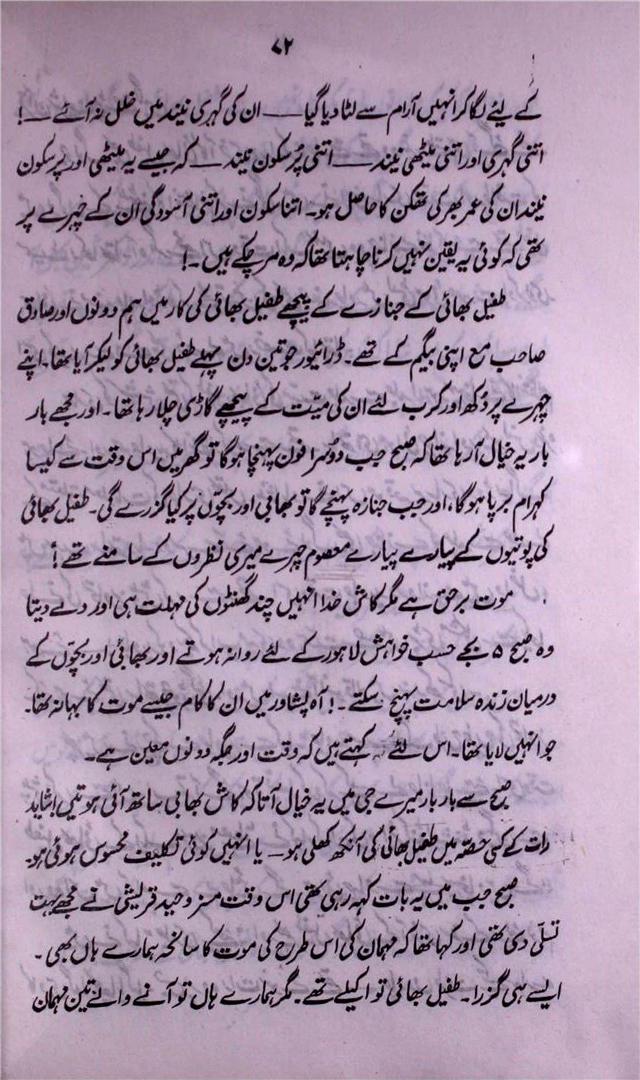 ۷۲
کے لیئے لگا کر انہیں آرام سے لٹا دیا گیا —— ان کی گہری نیند میں خلل نہ آئے —!
اتنی گہری اور اتنی میٹھی نیند —— اتنی پُر سکون نیند — کہ جیسے یہ میٹھی اور پر سکون
نیند ان کی عمر بھر کی تھکن کا حاصل ہو۔ اتنا سکون اور اتنی آسودگی ان کے چہرے پر
تھی کہ کوئی یہ یقین نہیں کرنا چاہتا تھا کہ وہ مر چکے ہیں۔!
طفیل بھائی کے جنازے کے پیچھے طفیل بھائی کی کار میں ہم دونوں اور صادق
صاحب مع اپنی بیگم کے تھے۔ ڈرائیور جو تین دن پہلے طفیل بھائی کو لیکر آیا تھا۔ اپنے
چہرے پر دُکھ اور کرب لئے ان کی میّت کے پیچھے گاڑی چلا رہا تھا۔ اور مجھے بار
بار یہ خیال آ رہا تھا کہ صبح جب دوُسرا فون پہنچا ہو گا تو گھر میں اس وقت سے کیسا
کہرام برپا ہو گا، اور جب جنازہ پہنچے گا تو بھابی اور بچّوں پر کیا گزرے گی۔ طفیل بھائی
کی پوتیوں کے پیارے پیارے معصوم چہرے میری نظروں کے سامنے تھے!
موت برحق ہے مگر کاش خدا انہیں چند گھنٹوں کی مہلت ہی اور دے دیتا
وہ صبح ۵ بجے حسب خواہش لاہور کے لئے روانہ ہوتے اور بھابی اور بچّوں کے
درمیان زندہ سلامت پہنچ سکتے۔! آہ پشاور میں ان کا کام جیسے موت کا بہانہ تھا۔
جو انہیں لایا تھا۔ اس لئے کہتے ہیں کہ وقت اور جگہ دونوں معین ہے۔
صبح سے بار بار میرے جی میں یہ خیال آتا کہ کاش بھابی ساتھ آئی ہوتیں! شاید
رات کے کسی حصّہ میں طفیل بھائی کی آنکھ کھلی ہو — یا انہیں کوئی تکلیف محسوس ہوئی ہو۔
صبح جب میں یہ بات کہہ رہی تھی اس وقت مسز وحید قریشی نے مجھے بہت
تسلّی دی تھی اور کہا تھا کہ مہمان کی اس طرح کی موت کا سانحہ ہمارے ہاں بھی۔
ایسے ہی گزرا۔ طفیل بھائی تو اکیلے تھے۔ مگر ہمارے ہاں تو آنے والے تین مہمان